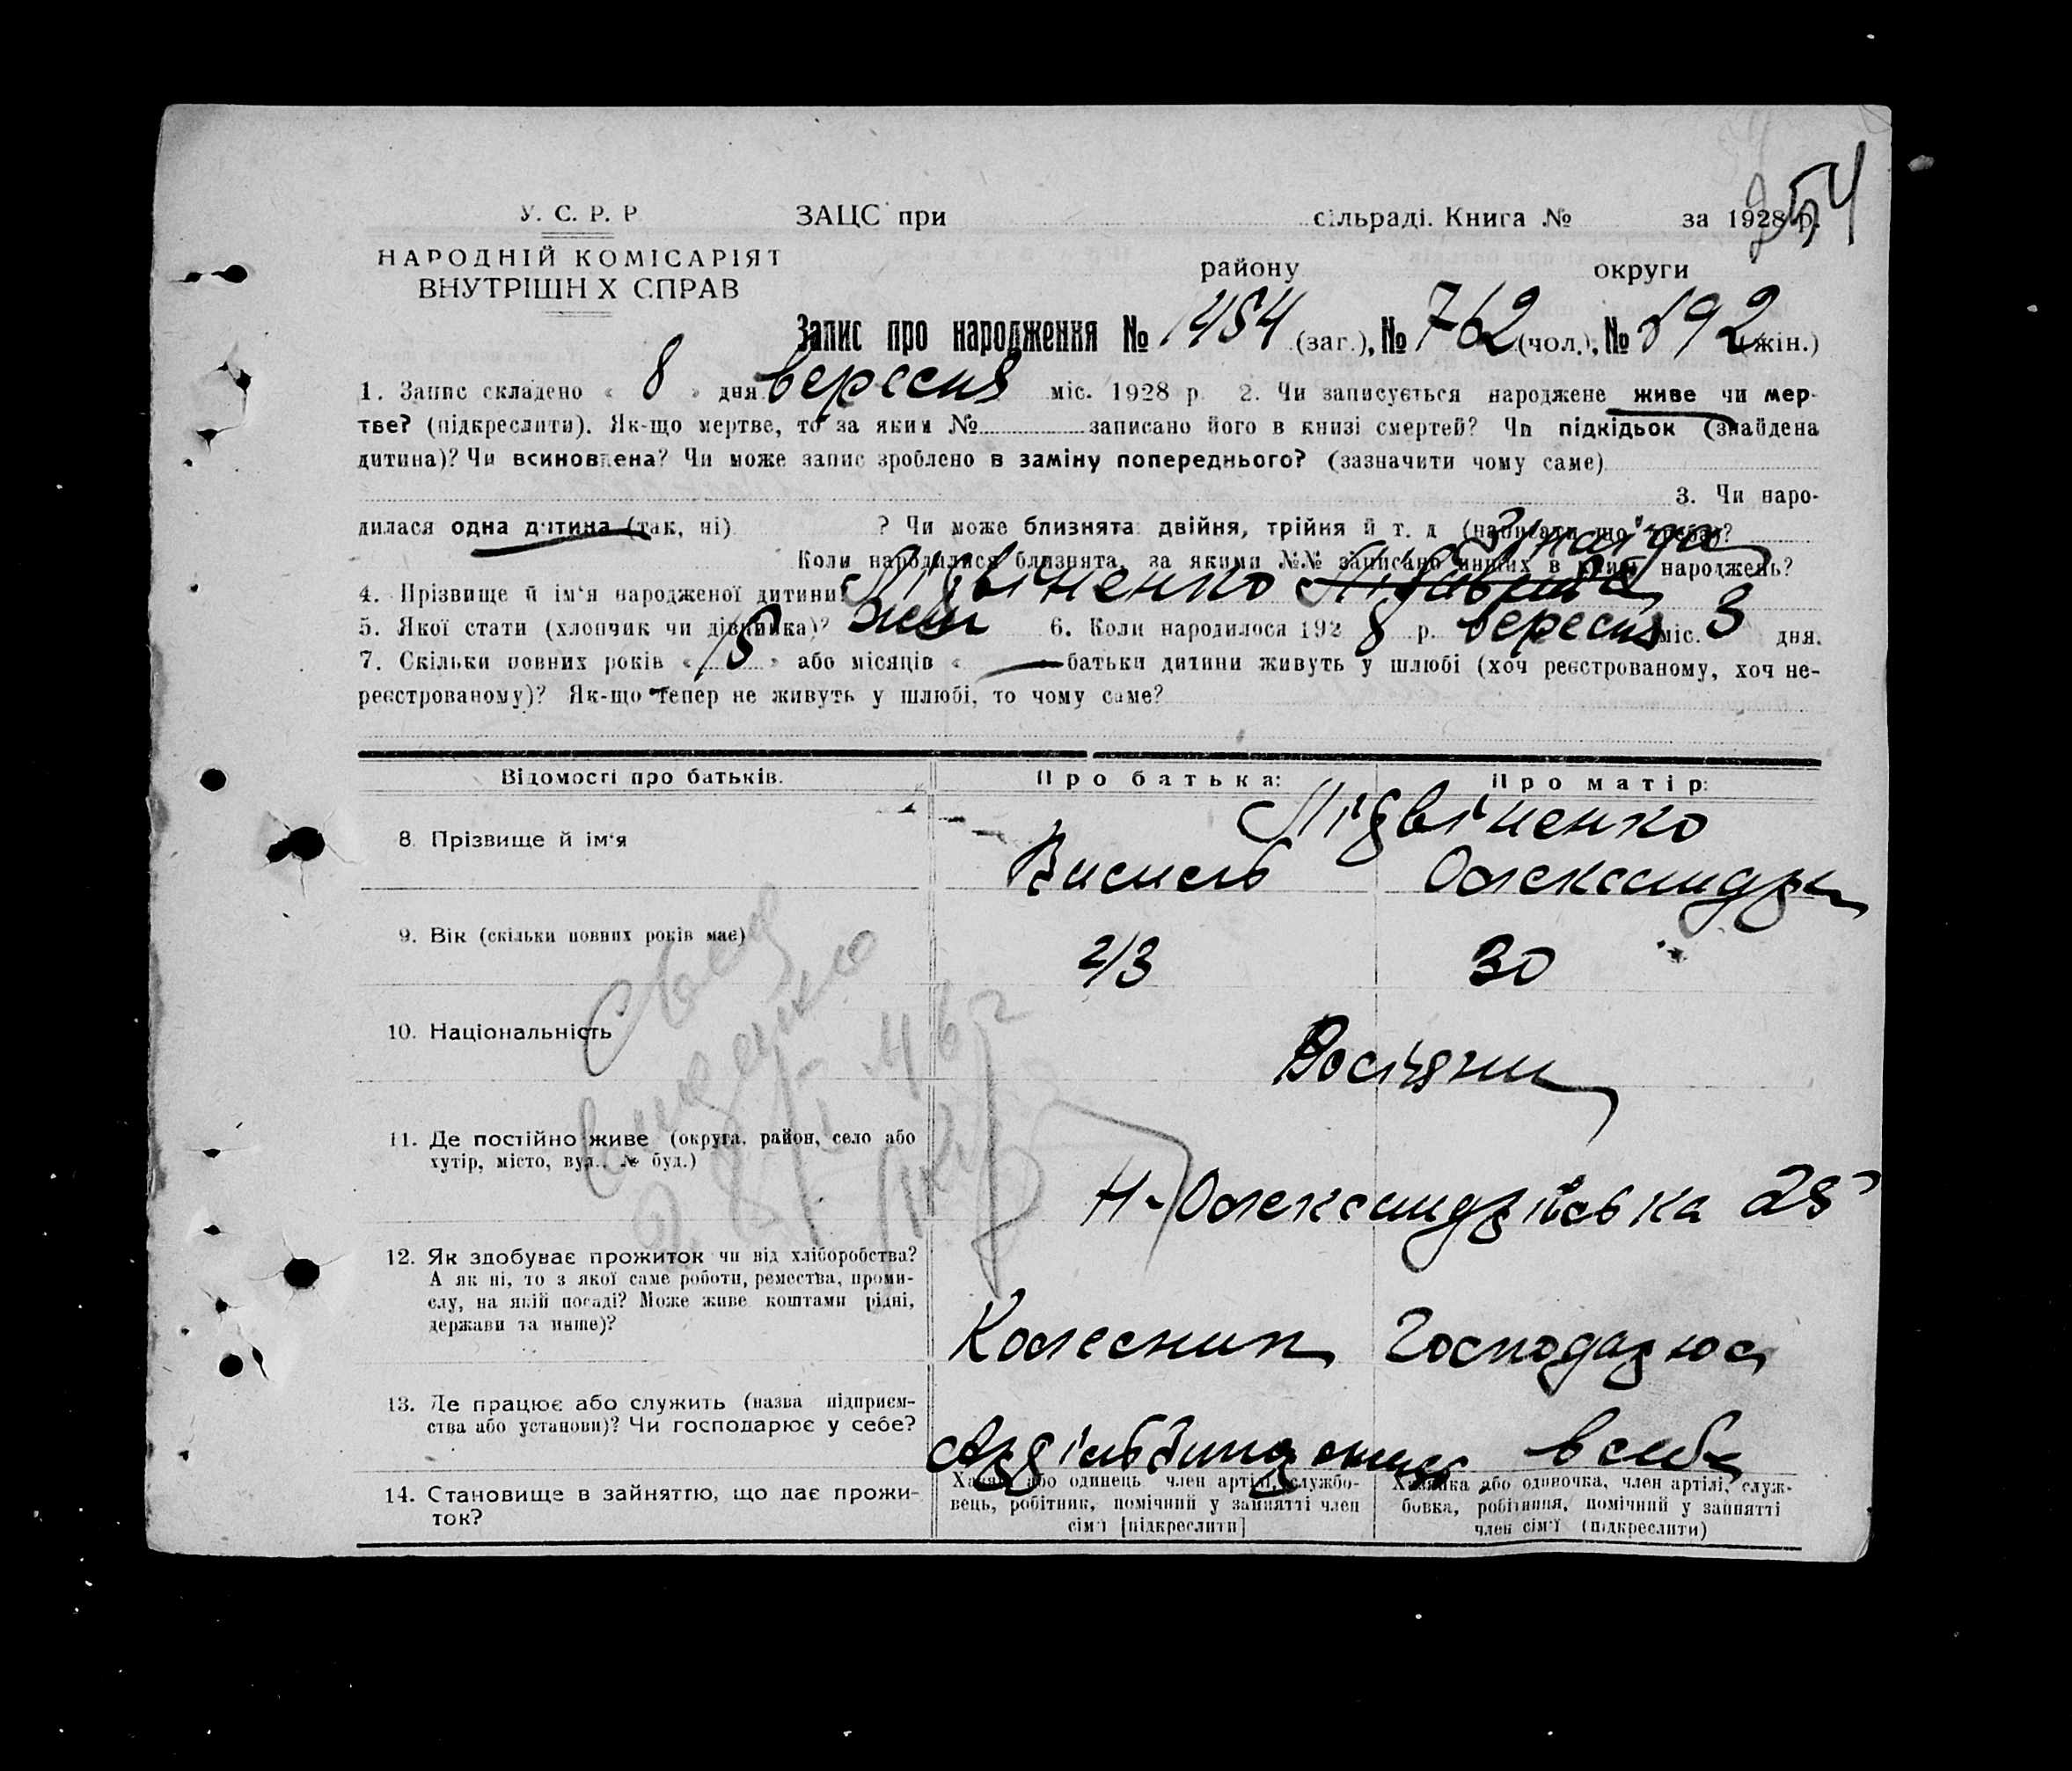 254
У. С. Р. Р.
ЗАЦС при сільраді. Книга № за 1928 р.
НАРОДНІЙ КОМІСАРІЯТ
ВНУТРІШН Х СПРАВ
району округи
Запис про народження № 1454 (заг.), № 762 (чол.), № 692 (жін.)
1. Запис складено « 8 » дня вересня міс. 1928 р. 2. Чи записується народжене живе чи мер-
тве? (підкреслити). Як-що мертве, то за яким № записано його в книзі смертей? Чи підкідьок (знайдена
дитина)? Чи всиновлена? Чи може запис зроблено в заміну попереднього? (зазначити чому саме)
3. Чи наро-
дилася одна дитина (так, ні) ? Чи може близнята: двійня, трійня й т. д. (написати що треба)?
Зінаїда
Коли народилися близнята, за якими №№ записано инших в книзі народжень?
4. Прізвище й ім'я народженої дитини Підвіненко
5. Якої стати (хлопчик чи дівчинка)? жін 6. Коли народилося 1928 р. вересня міс. 3 дня.
7. Скільки повних років « » або місяців « — » батьки дитини живуть у шлюбі (хоч реєстрованому, хоч не-
реєстрованому)? Як-що тепер не живуть у шлюбі, то чому саме?
Відомості про батьків. Про батька: Про матір:
Підвіненко
8. Прізвище й ім'я Василь Олександра
9. Вік (скільки повних років має) 30
10. Національність Росіяни
11. Де постійно живе (округа, район, село або
хутір, місто, вул., № буд.)
Н-Олександрівська 28
12. Як здобуває прожиток чи від хліборобства?
А як ні, то з якої саме роботи, ремества, проми-
слу, на якій посаді? Може живе коштами рідні,
держави та инше)?
Колесник Господарює
13. Де працює або служить (назва підприєм-
ства або установи)? Чи господарює у себе?
в себе
14. Становище в зайняттю, що дає прожи-
ток?
Хазяїн або одинець член артілі, службо-
вець, робітник, помічний у зайнятті член
сім'ї [підкреслити]
Хазяйка або одиночка, член артілі, служ-
бовка, робітниця, помічний у зайнятті
член сім'ї (підкреслити)